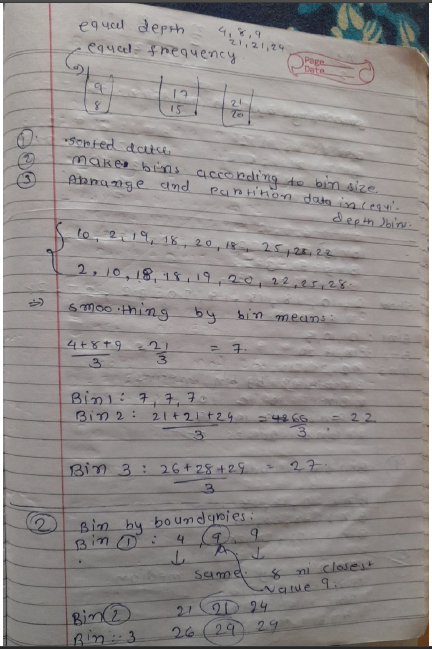 equal depth 4, 8, 9
21, 21, 24
equal-frequency.
Page
Date
9 17 21
8 15 20
① Sorted data
② Make bins according to bin size.
③ Arrange and partition data in (equi-
depth) bin.
10, 2, 19, 18, 20, 18, 25, 28, 22
2, 10, 18, 18, 19, 20, 22, 25, 28
⇒ Smoothing by bin means:
4+8+9/3 = 21/3 = 7
Bin 1: 7, 7, 7
Bin 2: 21+21+24/3 = 66/3 = 22
Bin 3: 26+28+29/3 = 27
② Bin by boundaries:
Bin ①: 4, 9, 9
↓ ↓
same. 8 ni closest
value 9.
Bin ② 21 21 24
Bin:-3 26 29 29